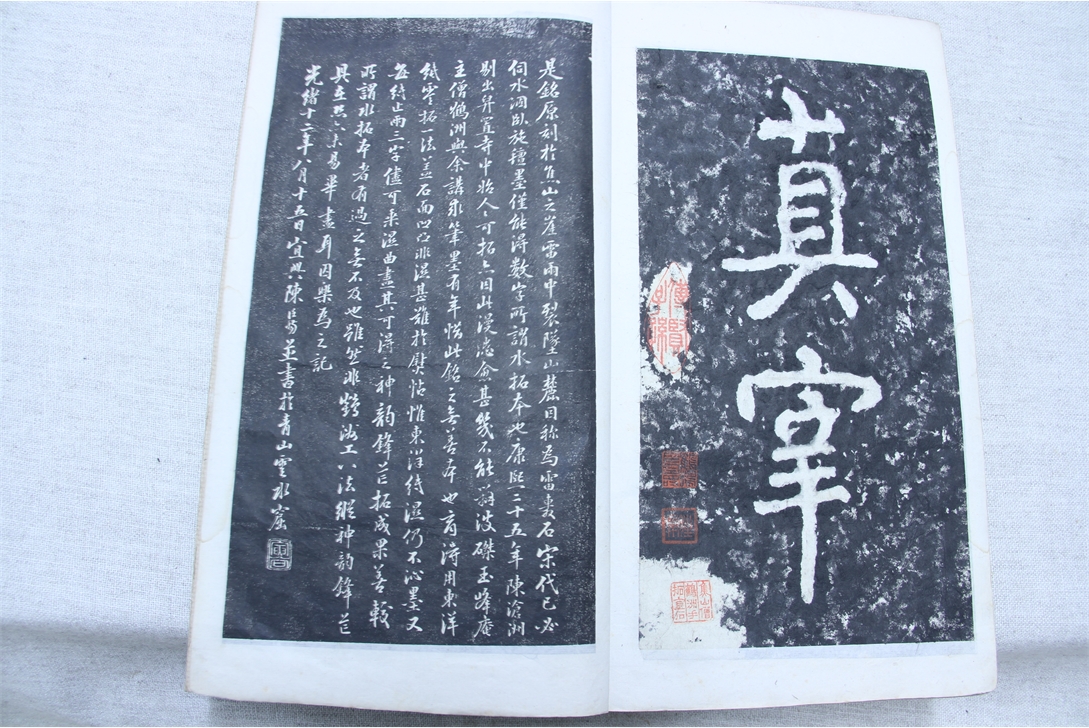 真宰
是銘原刻於焦山之崖雷雨中裂墜山麓因稱為雷轟石宋代已必
伺水涸臥施氊墨僅能得數字所謂水拓本也康熙二十五年陳滄洲
剔出舁置寺中始人人可拓亦因此漫漶愈甚幾不能辨波磔玉峰庵
主僧鶴洲與余講求筆墨有年惜此銘之無善本也得用東洋
紙拓一法蓋石面凹凸非濕甚難於熨帖惟東洋紙濕仍不沁墨又
每紙止兩三字儘可乘濕曲盡其可得之神韵鋒芒拓成果善較
所謂水拓本者有過之無不及也雖然非鶴洲工八法縱神韵鋒芒
具在恐亦未易畢盡耳因樂為之記
光緒十二年八月十五日宜興陳並書於青山雲水窟